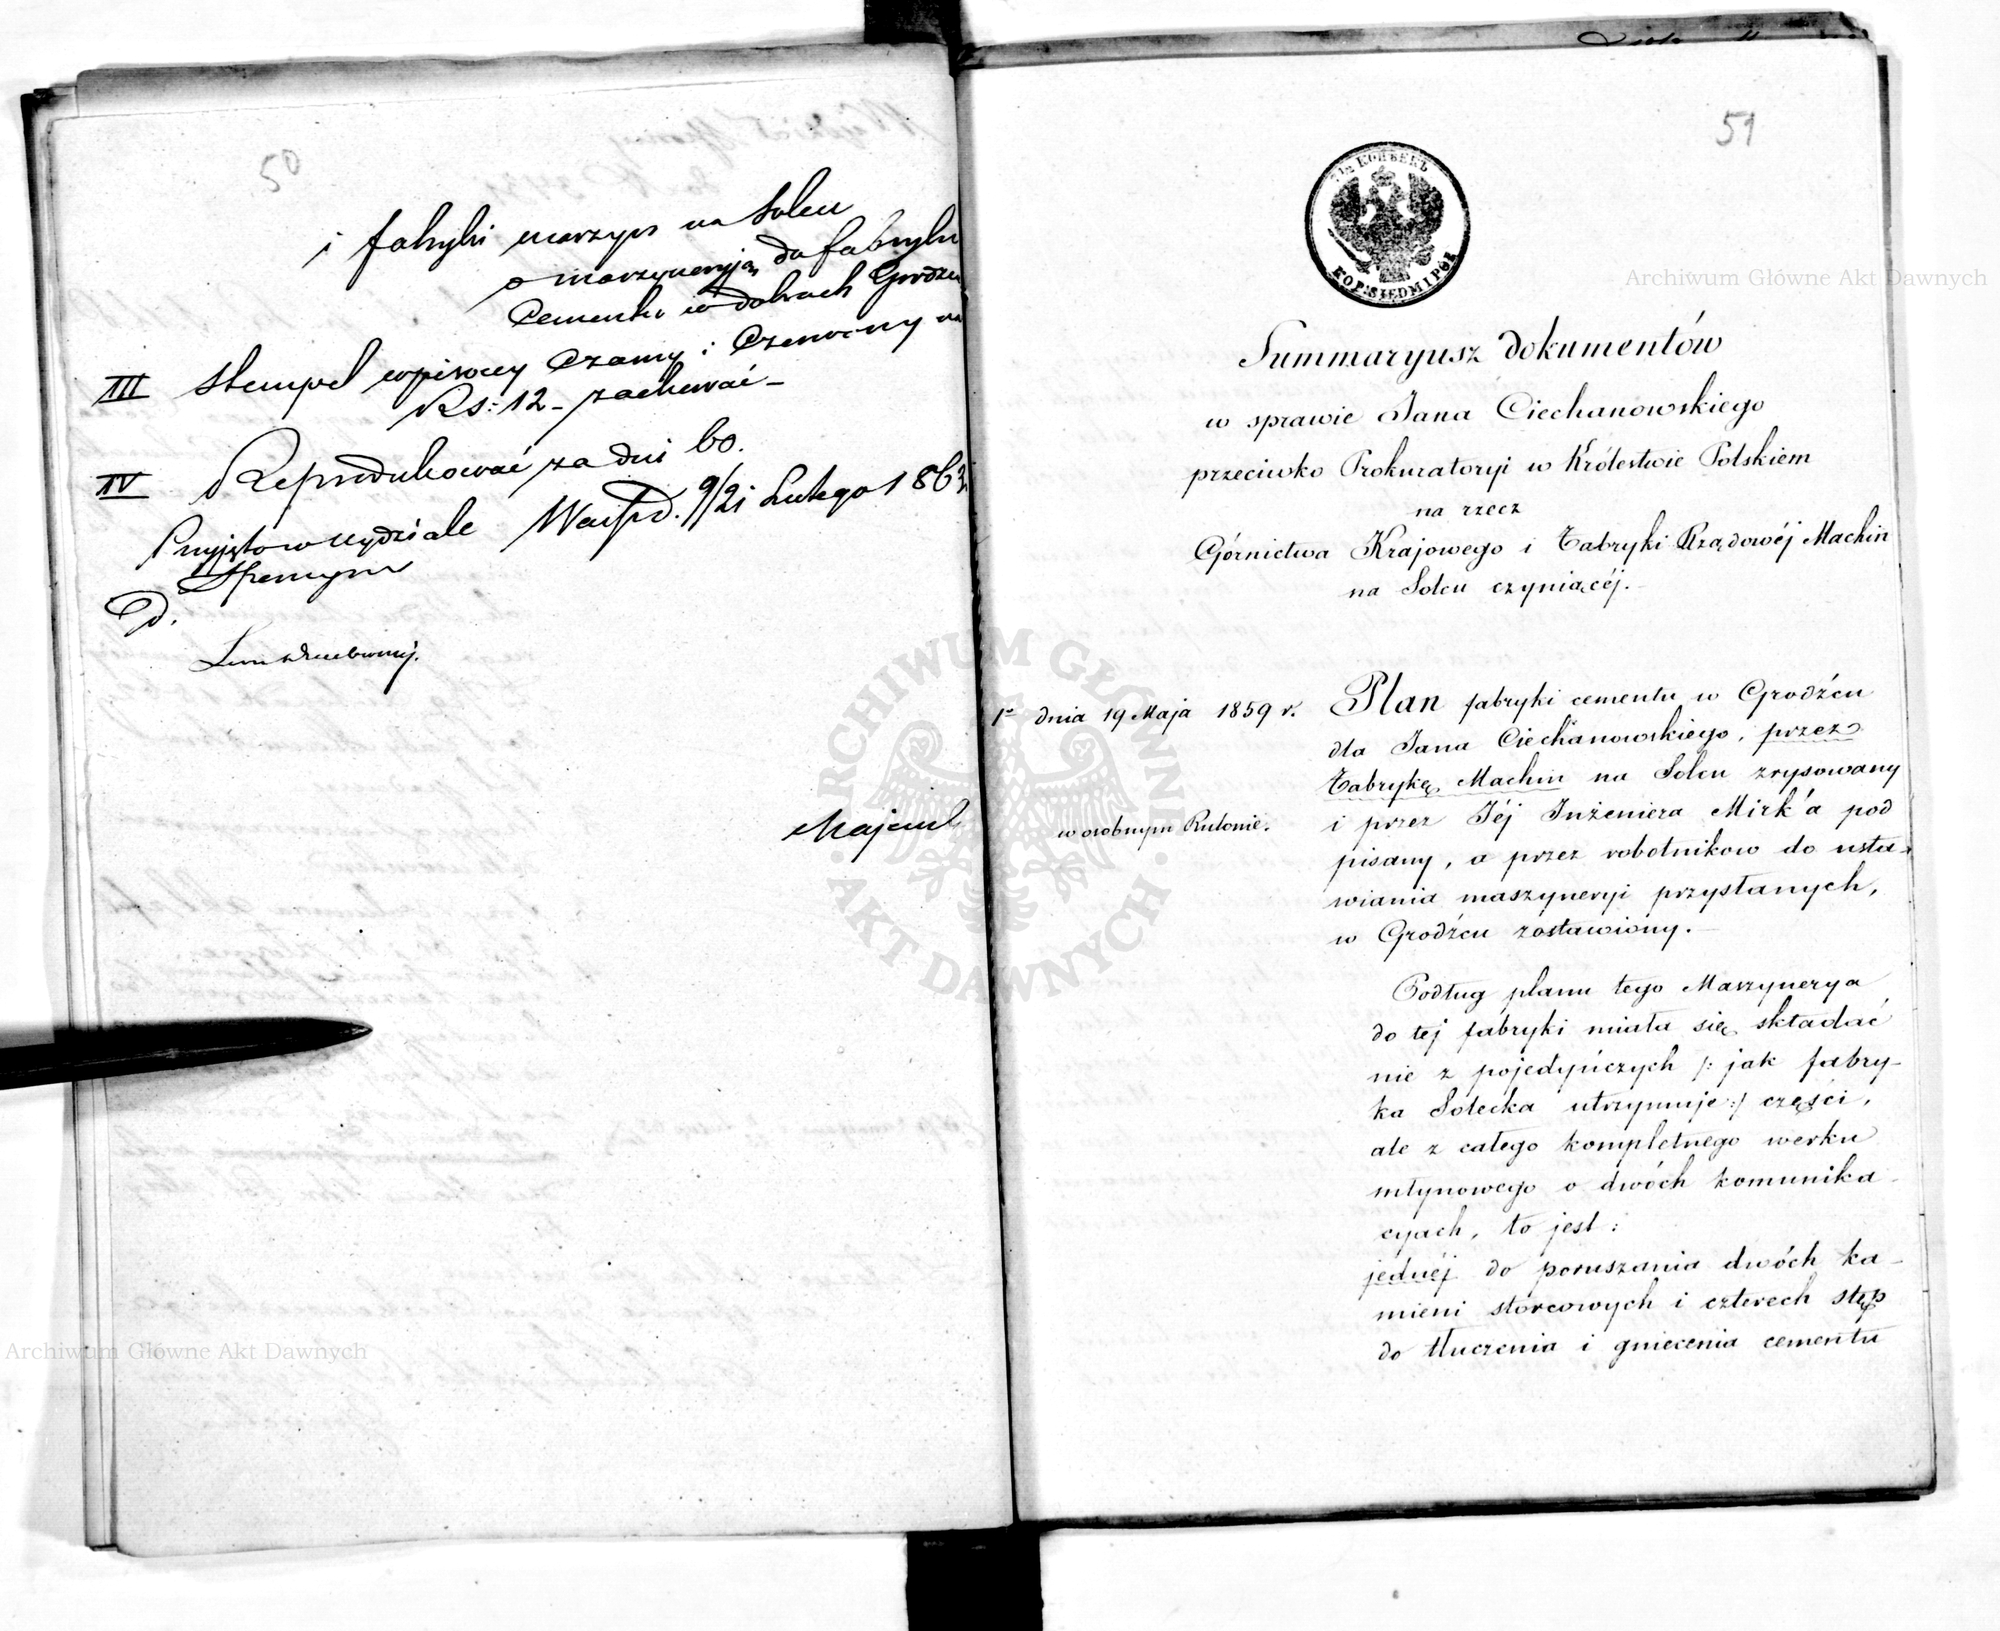 50
i fabryki maszyn na Solcu
o maszyneryją do fabryki
Cementu w dobrach Grodzu
III stempel wpisowy Czarny i Czerwony na
Rs: 12 - zachować -
IV Reprodukować za dni 60.
Przyjęto w wydziale Warsz d. 9/21 Lutego 1863
Spornym
D.
Majewsk
51
7½ КОПѢЕКЪ
KOP: SIEDM I PÓŁ
Summaryusz dokumentów
w sprawie Jana Ciechanowskiego
przeciwko Prokuratoryi w Królestwie Polskiem
na rzecz
Górnictwa Krajowego i Fabryki Rządowéj Machin
na Solcu czyniącéj. -
1º dnia 19 Maja 1859 r. Plan fabryki cementu w Grodźcu
dla Jana Ciechanowskiego, przez
Fabrykę Machin na Solcu zrysowany
w osobnym Rulonie. i przez Jéj Inżeniera Mirk'a pod
pisany, a przez robotnikow do usta-
wiania maszyneryi przysłanych,
w Grodźcu zostawiony. -
Podług planu tego Maszynerya
do tej fabryki miała się składać
nie z pojedyńczych /: jak fabry-
ka Solecka utrzymuje :/ części,
ale z całego kompletnego werku
młynowego o dwóch komunika-
cyach, to jest:
jednéj do poruszania dwóch ka-
mieni storcowych i czterech stęp
do tłuczenia i gniecenia cementu
Archiwum Główne Akt Dawnych
Archiwum Główne Akt Dawnych
ARCHIWUM GŁÓWNE
AKT DAWNYCH